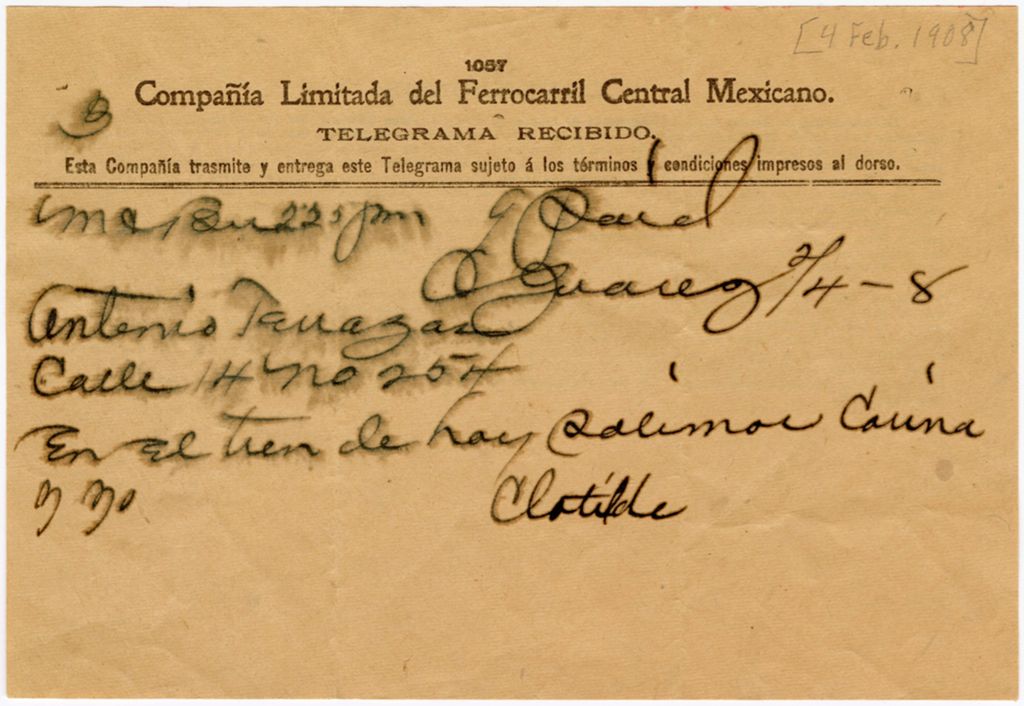 [4 Feb. 1908]
1057
Compañía Limitada del Ferrocarril Central Mexicano.
3
TELEGRAMA RECIBIDO.
Esta Compañía trasmite y entrega este Telegrama sujeto á los términos y condiciones impresos al dorso.
225 pm Paid
C Juarez 2/4-8
Antonio Terrazas
Calle 14 No 254
En el tren de hoy salimos Corina
y yo Clotilde